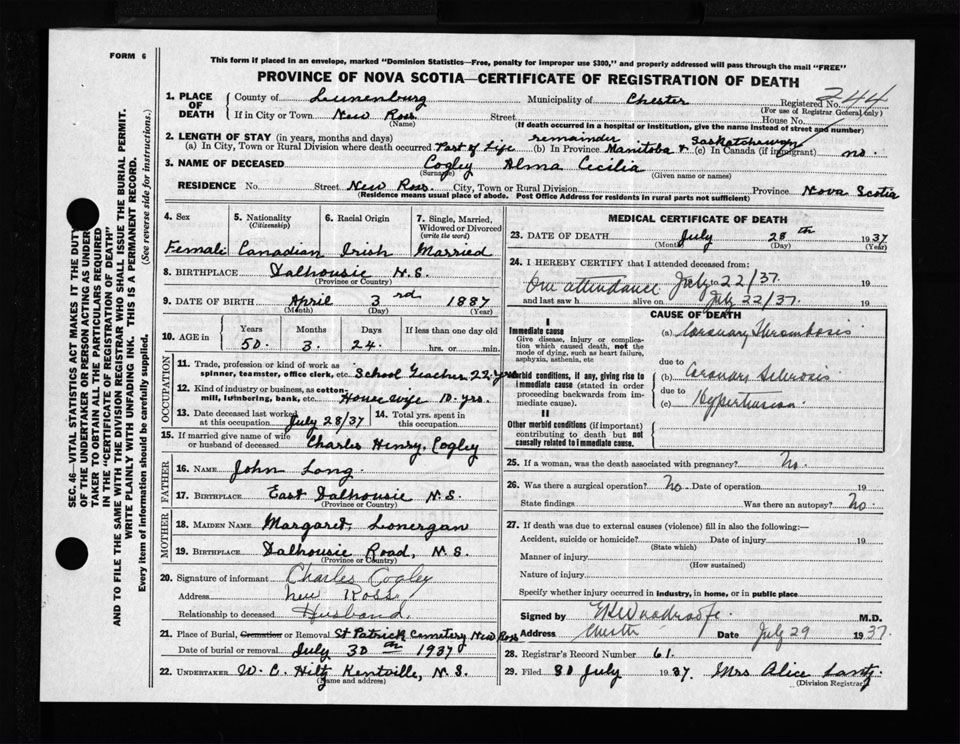 FORM 6
This form if placed in an envelope, marked "Dominion Statistics—Free, penalty for improper use $300," and properly addressed will pass through the mail "FREE"
PROVINCE OF NOVA SCOTIA—CERTIFICATE OF REGISTRATION OF DEATH
244
1. PLACE OF DEATH County of Lunenburg Municipality of Chester Registered No.
(For use of Registrar General only)
If in City or Town New Ross Street House No.
(Name) (If death occurred in a hospital or institution, give the name instead of street and number)
2. LENGTH OF STAY (in years, months and days) remainder Saskatchewan
(a) In City, Town or Rural Division where death occurred Part of Life (b) In Province Manitoba & (c) In Canada (if immigrant) no.
3. NAME OF DECEASED Cogley Alma Cecilia
(Surname) (Given name or names)
RESIDENCE No. Street New Ross. City, Town or Rural Division Province Nova Scotia
(Residence means usual place of abode. Post Office Address for residents in rural parts not sufficient)
4. Sex 5. Nationality (Citizenship) 6. Racial Origin 7. Single, Married, Widowed or Divorced (write the word)
Female Canadian Irish Married
8. BIRTHPLACE Dalhousie N.S.
(Province or Country)
9. DATE OF BIRTH April 3rd 1887
(Month) (Day) (Year)
10. AGE in Years Months Days If less than one day old
50. 3. 24. hrs. or min.
OCCUPATION
11. Trade, profession or kind of work as spinner, teamster, office clerk, etc. School Teacher 22 yrs
12. Kind of industry or business, as cotton-mill, lumbering, bank, etc. Housewife 10. yrs.
13. Date deceased last worked at this occupation July 28/37 14. Total yrs. spent in this occupation
15. If married give name of wife or husband of deceased Charles Henry, Cogley
FATHER
16. NAME John Long
17. BIRTHPLACE East Dalhousie N.S.
MOTHER
18. MAIDEN NAME Margaret, Lonergan
19. BIRTHPLACE Dalhousie Road, N.S.
(Province or Country)
20. Signature of informant Charles Cogley
Address New Ross.
Relationship to deceased Husband.
21. Place of Burial, Cremation or Removal St Patrick Cemetery New Ross
Date of burial or removal July 30th 1937
22. UNDERTAKER W. C. Hiltz Kentville, N.S.
(Name and address)
MEDICAL CERTIFICATE OF DEATH
23. DATE OF DEATH July 28th 1937
(Month) (Day) (Year)
24. I HEREBY CERTIFY that I attended deceased from:
One attendance July 22/37. 19
and last saw h alive on July 22/37. 19
CAUSE OF DEATH
I
Immediate cause (a) Coronary Thrombosis
Give disease, injury or complication which caused death, not the mode of dying, such as heart failure, asphyxia, asthenia, etc
due to
Morbid conditions, if any, giving rise to immediate cause (stated in order proceeding backwards from immediate cause). (b) Coronary Sclerosis
due to
(c) Hypertension.
II
Other morbid conditions (if important) contributing to death but not causally related to immediate cause.
25. If a woman, was the death associated with pregnancy? No.
26. Was there a surgical operation? No. Date of operation 19
State findings Was there an autopsy? No.
27. If death was due to external causes (violence) fill in also the following:—
Accident, suicide or homicide? Date of injury 19
(State which)
Manner of injury
(How sustained)
Nature of injury
Specify whether injury occurred in industry, in home, or in public place
Signed by Woodroofe. M.D.
Address Chester Date July 29 1937.
28. Registrar's Record Number 61.
29. Filed 30 July 1937. Mrs Alice Lantz
(Division Registrar)
SEC. 46—VITAL STATISTICS ACT MAKES IT THE DUTY
OF THE UNDERTAKER OR PERSON ACTING AS UNDERTAKER TO OBTAIN ALL THE PARTICULARS REQUIRED
IN THE "CERTIFICATE OF REGISTRATION OF DEATH"
AND TO FILE THE SAME WITH THE DIVISION REGISTRAR WHO SHALL ISSUE THE BURIAL PERMIT.
WRITE PLAINLY WITH UNFADING INK. THIS IS A PERMANENT RECORD.
Every item of information should be carefully supplied. (See reverse side for instructions.)